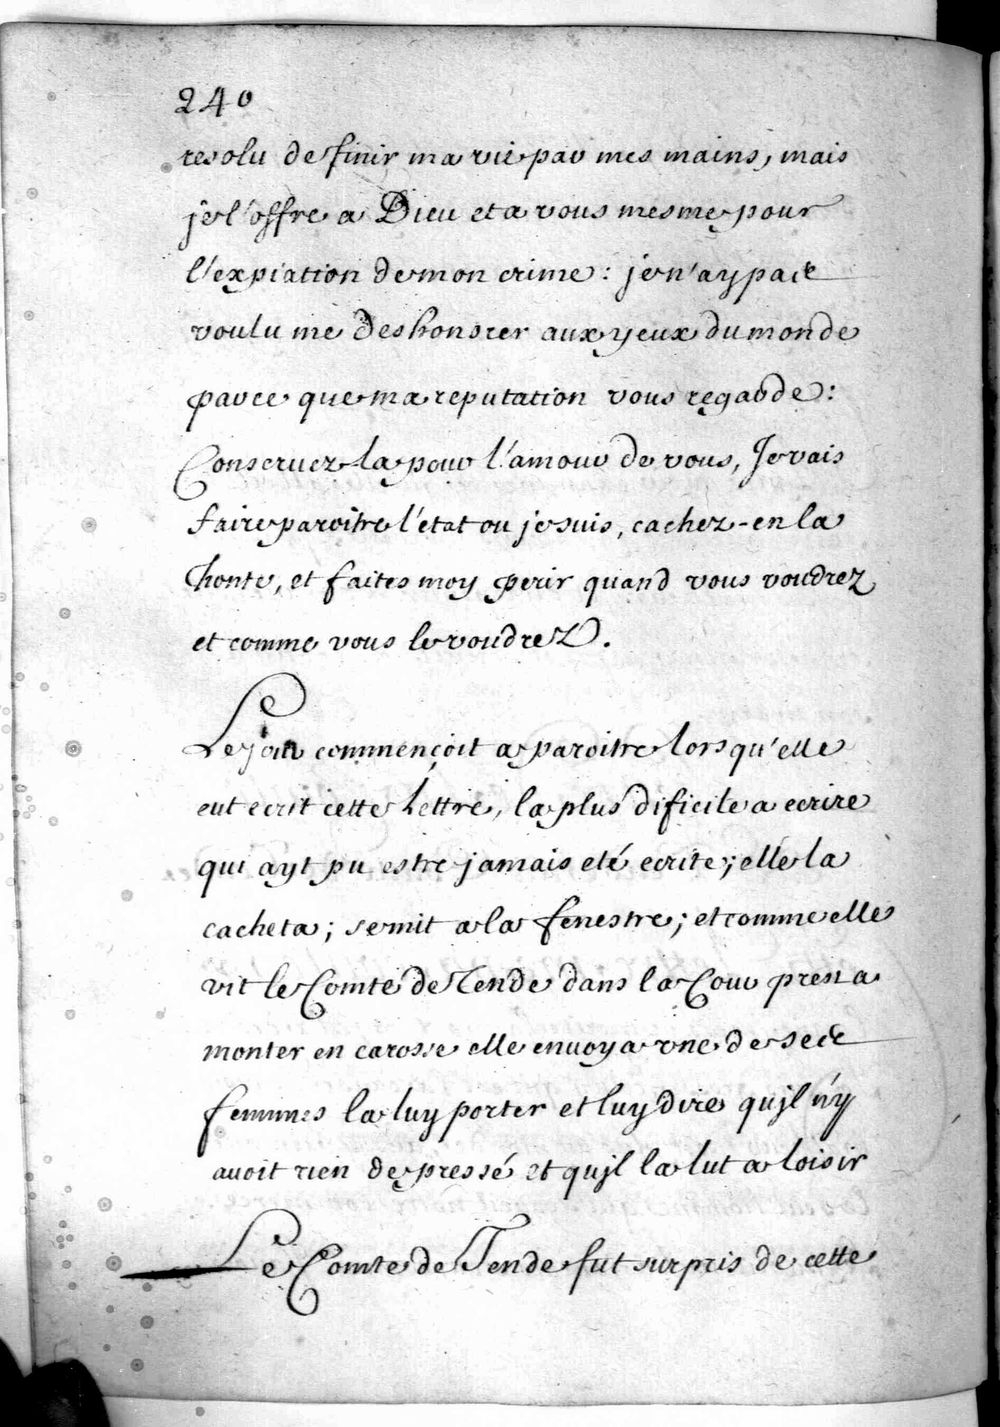 240
resolu de finir ma vie par mes mains, mais
je l'offre a Dieu et a vous mesme pour
l'expiation de mon crime : je n'ay pas
voulu me deshonorer aux yeux du monde
parce que ma reputation vous regarde :
Conservez la pour l'amour de vous, Je vais
faire paroitre l'état ou je suis, cachez-en la
honte, et faites moy perir quand vous voudrez
et comme vous le voudrez.
Le jour commençoit a paroitre lorsqu'elle
eut ecrit cette Lettre, la plus dificile a ecrire
qui ayt pu estre jamais eté ecrite ; elle la
cacheta ; se mit a la fenestre ; et comme elle
vit le Comte de Tende dans la Cour prest a
monter en carosse elle envoya vne de ses
femmes la luy porter et luy dire qujl n'y
avoit rien de pressé et qujl la lut a loisir
Le Comte de Tende fut surpris de cette